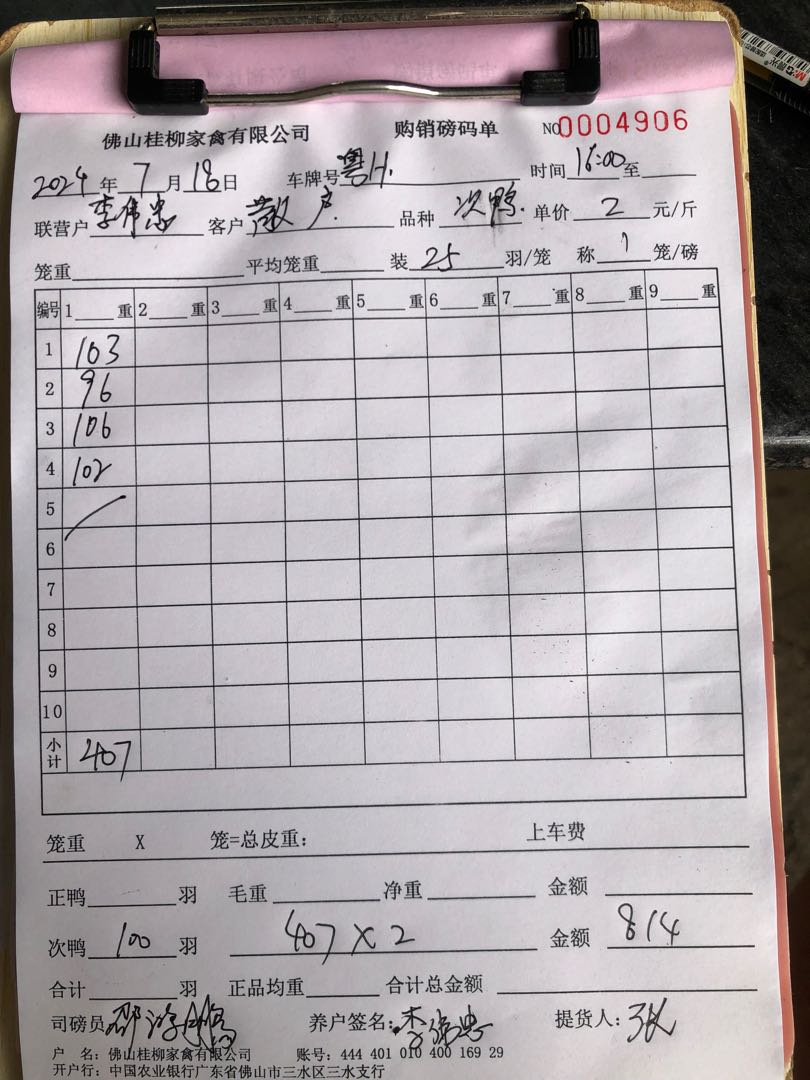 佛山桂柳家禽有限公司 购销磅码单 NO0004906
2024年7月18日 车牌号粤H. 时间16:00至
联营户李伟忠 客户散户. 品种次鸭. 单价2元/斤
笼重 平均笼重 装25羽/笼 称1笼/磅
编号 1 重 2 重 3 重 4 重 5 重 6 重 7 重 8 重 9 重
1 103
2 96
3 106
4 102
5
6
7
8
9
10
小计 407
笼重 X 笼=总皮重: 上车费
正鸭 羽 毛重 净重 金额
次鸭 100 羽 407×2 金额 814
合计 羽 正品均重 合计总金额
司磅员 养户签名:李伟忠 提货人:张
户 名:佛山桂柳家禽有限公司 账号:444 401 010 400 169 29
开户行:中国农业银行广东省佛山市三水区三水支行